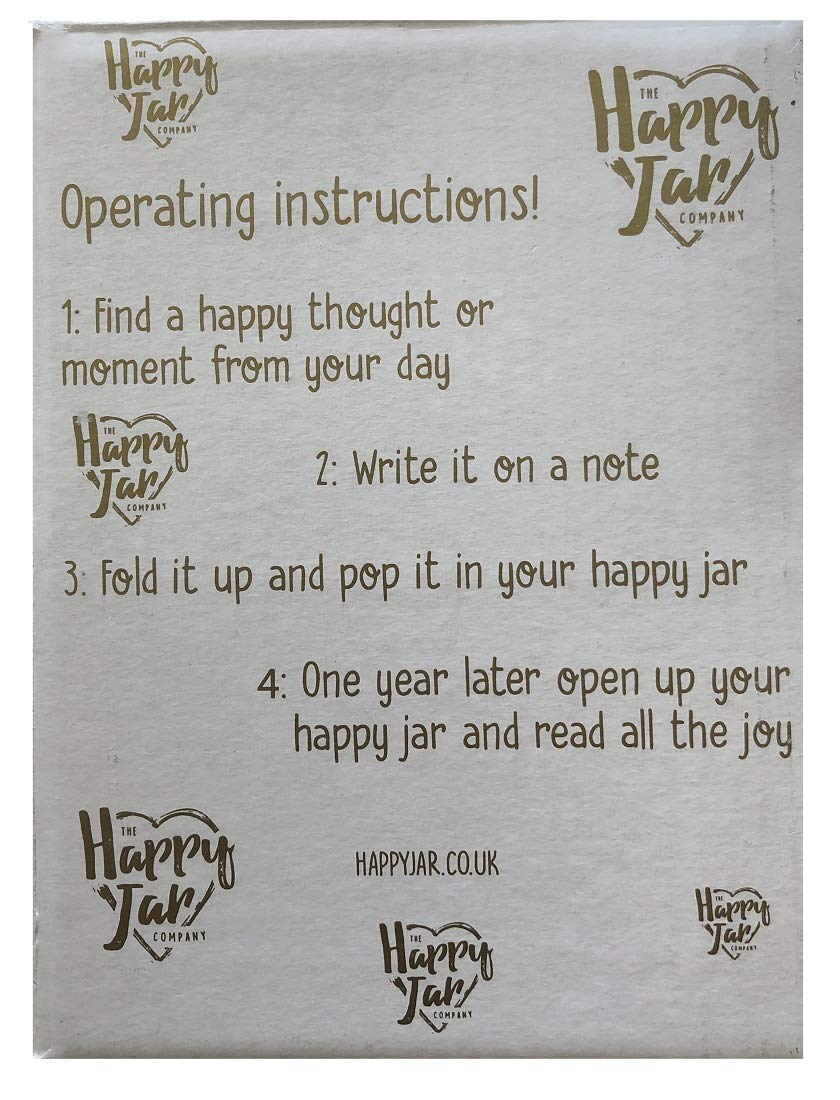 THE
Happy
Jar
COMPANY
THE
Happy
Jar
COMPANY
Operating instructions!
1: Find a happy thought or
moment from your day
THE
Happy
Jar
COMPANY
2: Write it on a note
3: Fold it up and pop it in your happy jar
4: One year later open up your
happy jar and read all the joy
THE
Happy
Jar
COMPANY
HAPPYJAR.CO.UK
THE
Happy
Jar
COMPANY
THE
Happy
Jar
COMPANY